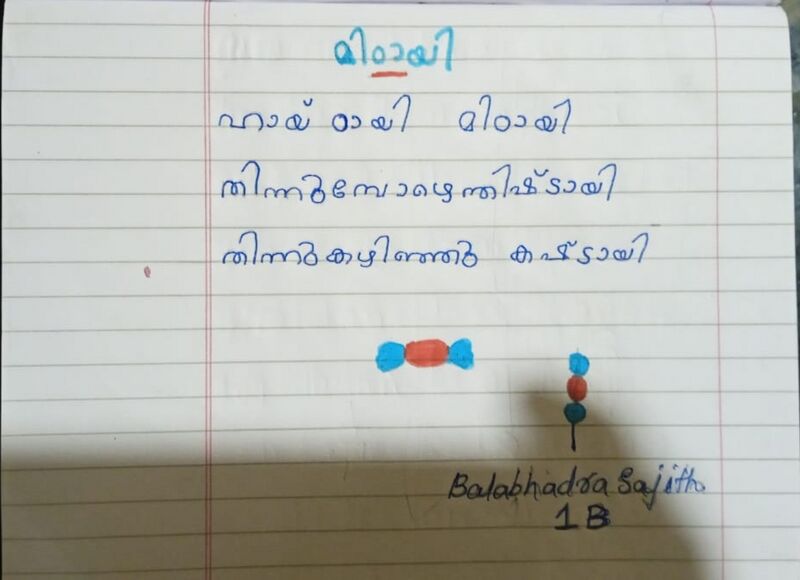 മിഠായി
ഹായ് ഠായി മിഠായി
തിന്നുമ്പോഴെന്തിഷ്ടായി
തിന്നുകഴിഞ്ഞു കഷ്ടായി
Balabhadra Sajith
1 B